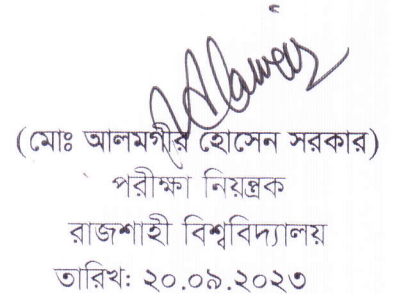 (মোঃ আলমগীর হোসেন সরকার)
পরীক্ষা নিয়ন্ত্রক
রাজশাহী বিশ্ববিদ্যালয়
তারিখ: ২০.০৯.২০২৩